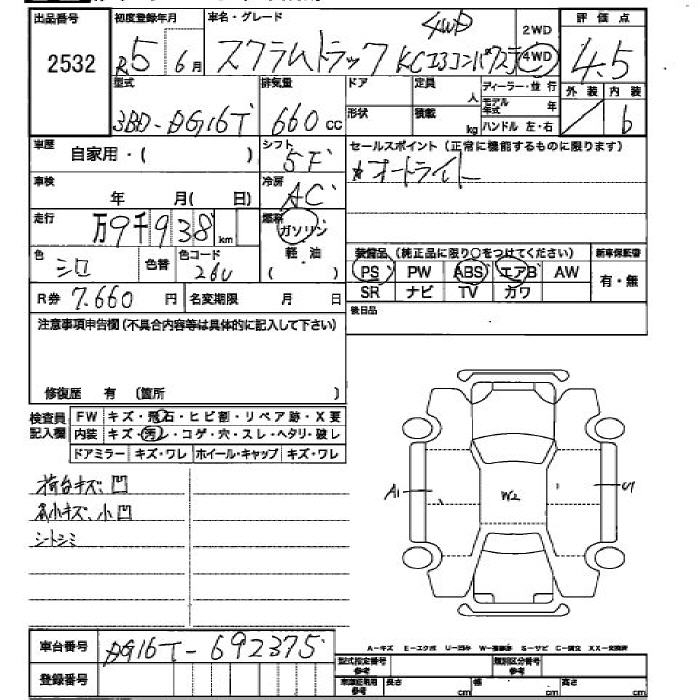 出品番号 初度登録年月 車名・グレード 2WD 評価点
2532 R5 6月 スクラムトラック KCエアコンパワステ 4WD 4WD 4.5
型式 排気量 ドア 定員 人 ディーラー・並行 外装 内装
3BD-DG16T 660 cc 形状 積載 kg モデル年式 年 b
ハンドル 左・右
車歴 自家用・( ) シフト 5F セールスポイント(正常に機能するものに限ります)
車検 年 月(日) 冷房 AC *オートライト
走行 万9千938km 燃料 ガソリン
軽油
( )
色 シロ 色替 色コード 26U
装備品(純正品に限り○をつけてください) 新車保証書
PS PW ABS エアB AW 有・無
SR ナビ TV カワ
R券 7.660 円 名変期限 月 日
後日品
注意事項申告欄(不具合内容等は具体的に記入して下さい)
修復歴 有 (箇所 )
検査員記入欄 FW キズ・飛石・ヒビ割・リペア跡・X要
内装 キズ・汚レ・コゲ・穴・スレ・ヘタリ・破レ
ドアミラー キズ・ワレ ホイール・キャップ キズ・ワレ
荷台キズ、凹
小キズ、小凹
シートシミ
A1 W2 U1
車台番号 DG16T-692375
登録番号
A-キズ E-エクボ U-凹み S-サビ XX-交換済
型式指定番号 参考 類別区分番号 参考
長さ cm 幅 cm 高さ cm